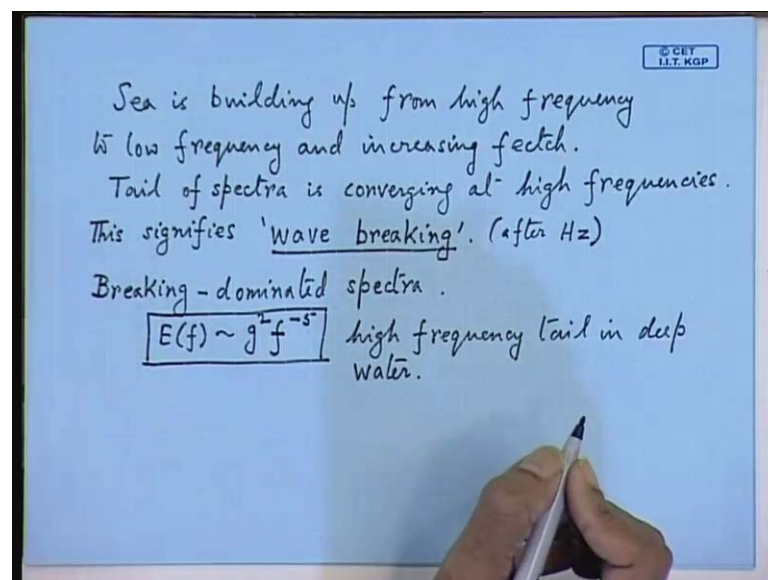 © CET
I.I.T. KGP
Sea is building up from high frequency
to low frequency and increasing fectch.
Tail of spectra is converging at high frequencies.
This signifies 'wave breaking'. (after Hz)
Breaking-dominated spectra.
E(f) ~ g²f⁻⁵ high frequency tail in deep
water.